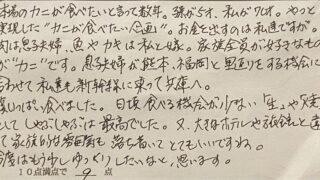 本場のカニが食べたいと言って数年。孫が5才、私が70才。やっと
実現した"カニが食べたい企画"。お金を出すのは私達ですが。
肉は息子夫婦、魚やカキは私と嫁。家族全員が好きなもの
が"カニ"です。息子夫婦が熊本・福岡と里辺りをする機会に
合わせて私達も新幹線に乗って兵庫へ。
いっぱい食べました。日頃食べる機会が少ない「生」や「焼
してしゃぶしゃぶは最高でした。又、大きなホテルや旅館と違
て家族的な雰囲気も落ち着いてとてもいいですね。
今度はもう少しゆっくりしたいなと、思います。
10点満点で 9 点